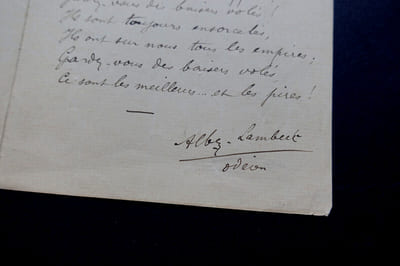 Gardez-vous des baisers volés !
Ils sont toujours ensorcelés,
Ils ont sur nous tous les empires ;
Gardez-vous des baisers volés,
Ce sont les meilleurs... et les pires !
—
Albert-Lambert
Odéon